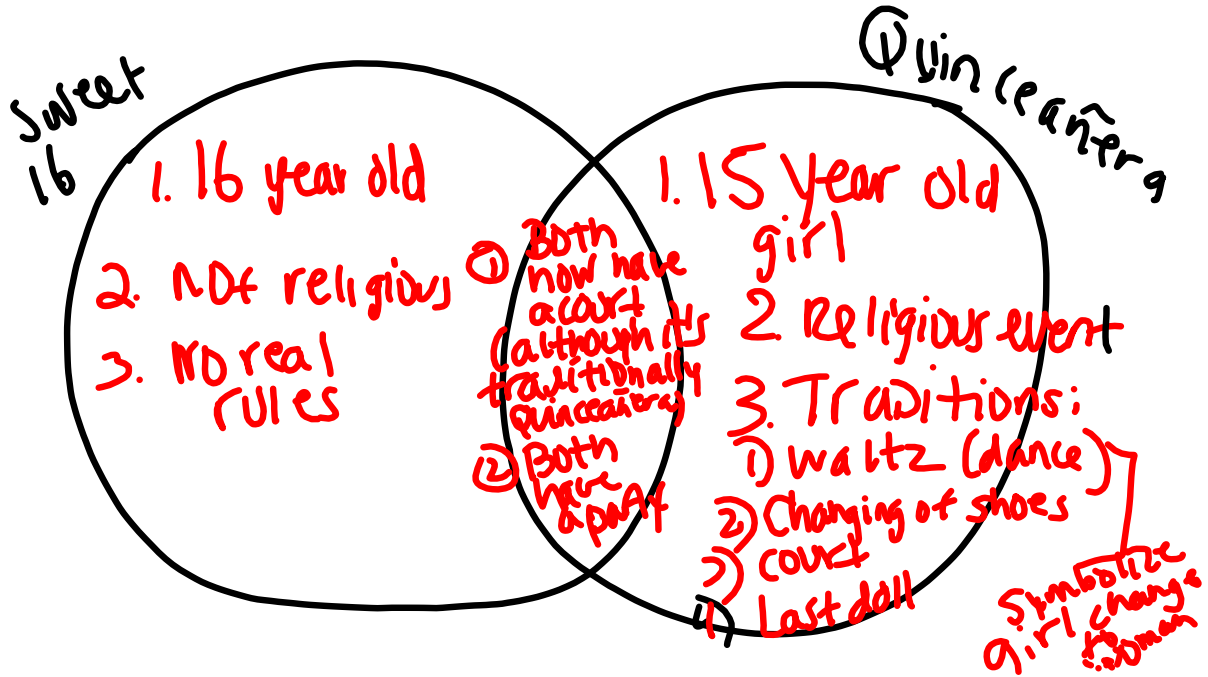 Sweet
16
1. 16 year old
2. Not religious
3. No real
rules
① Both
now have
a court
(although it's
traditionally
quinceañeras)
② Both
have
a party
Quinceañera
1. 15 year old
girl
2. Religious event
3. Traditions:
1) Waltz (dance)
2) Changing of shoes
3) court
4) Last doll
Symbolize
girl change
to
woman